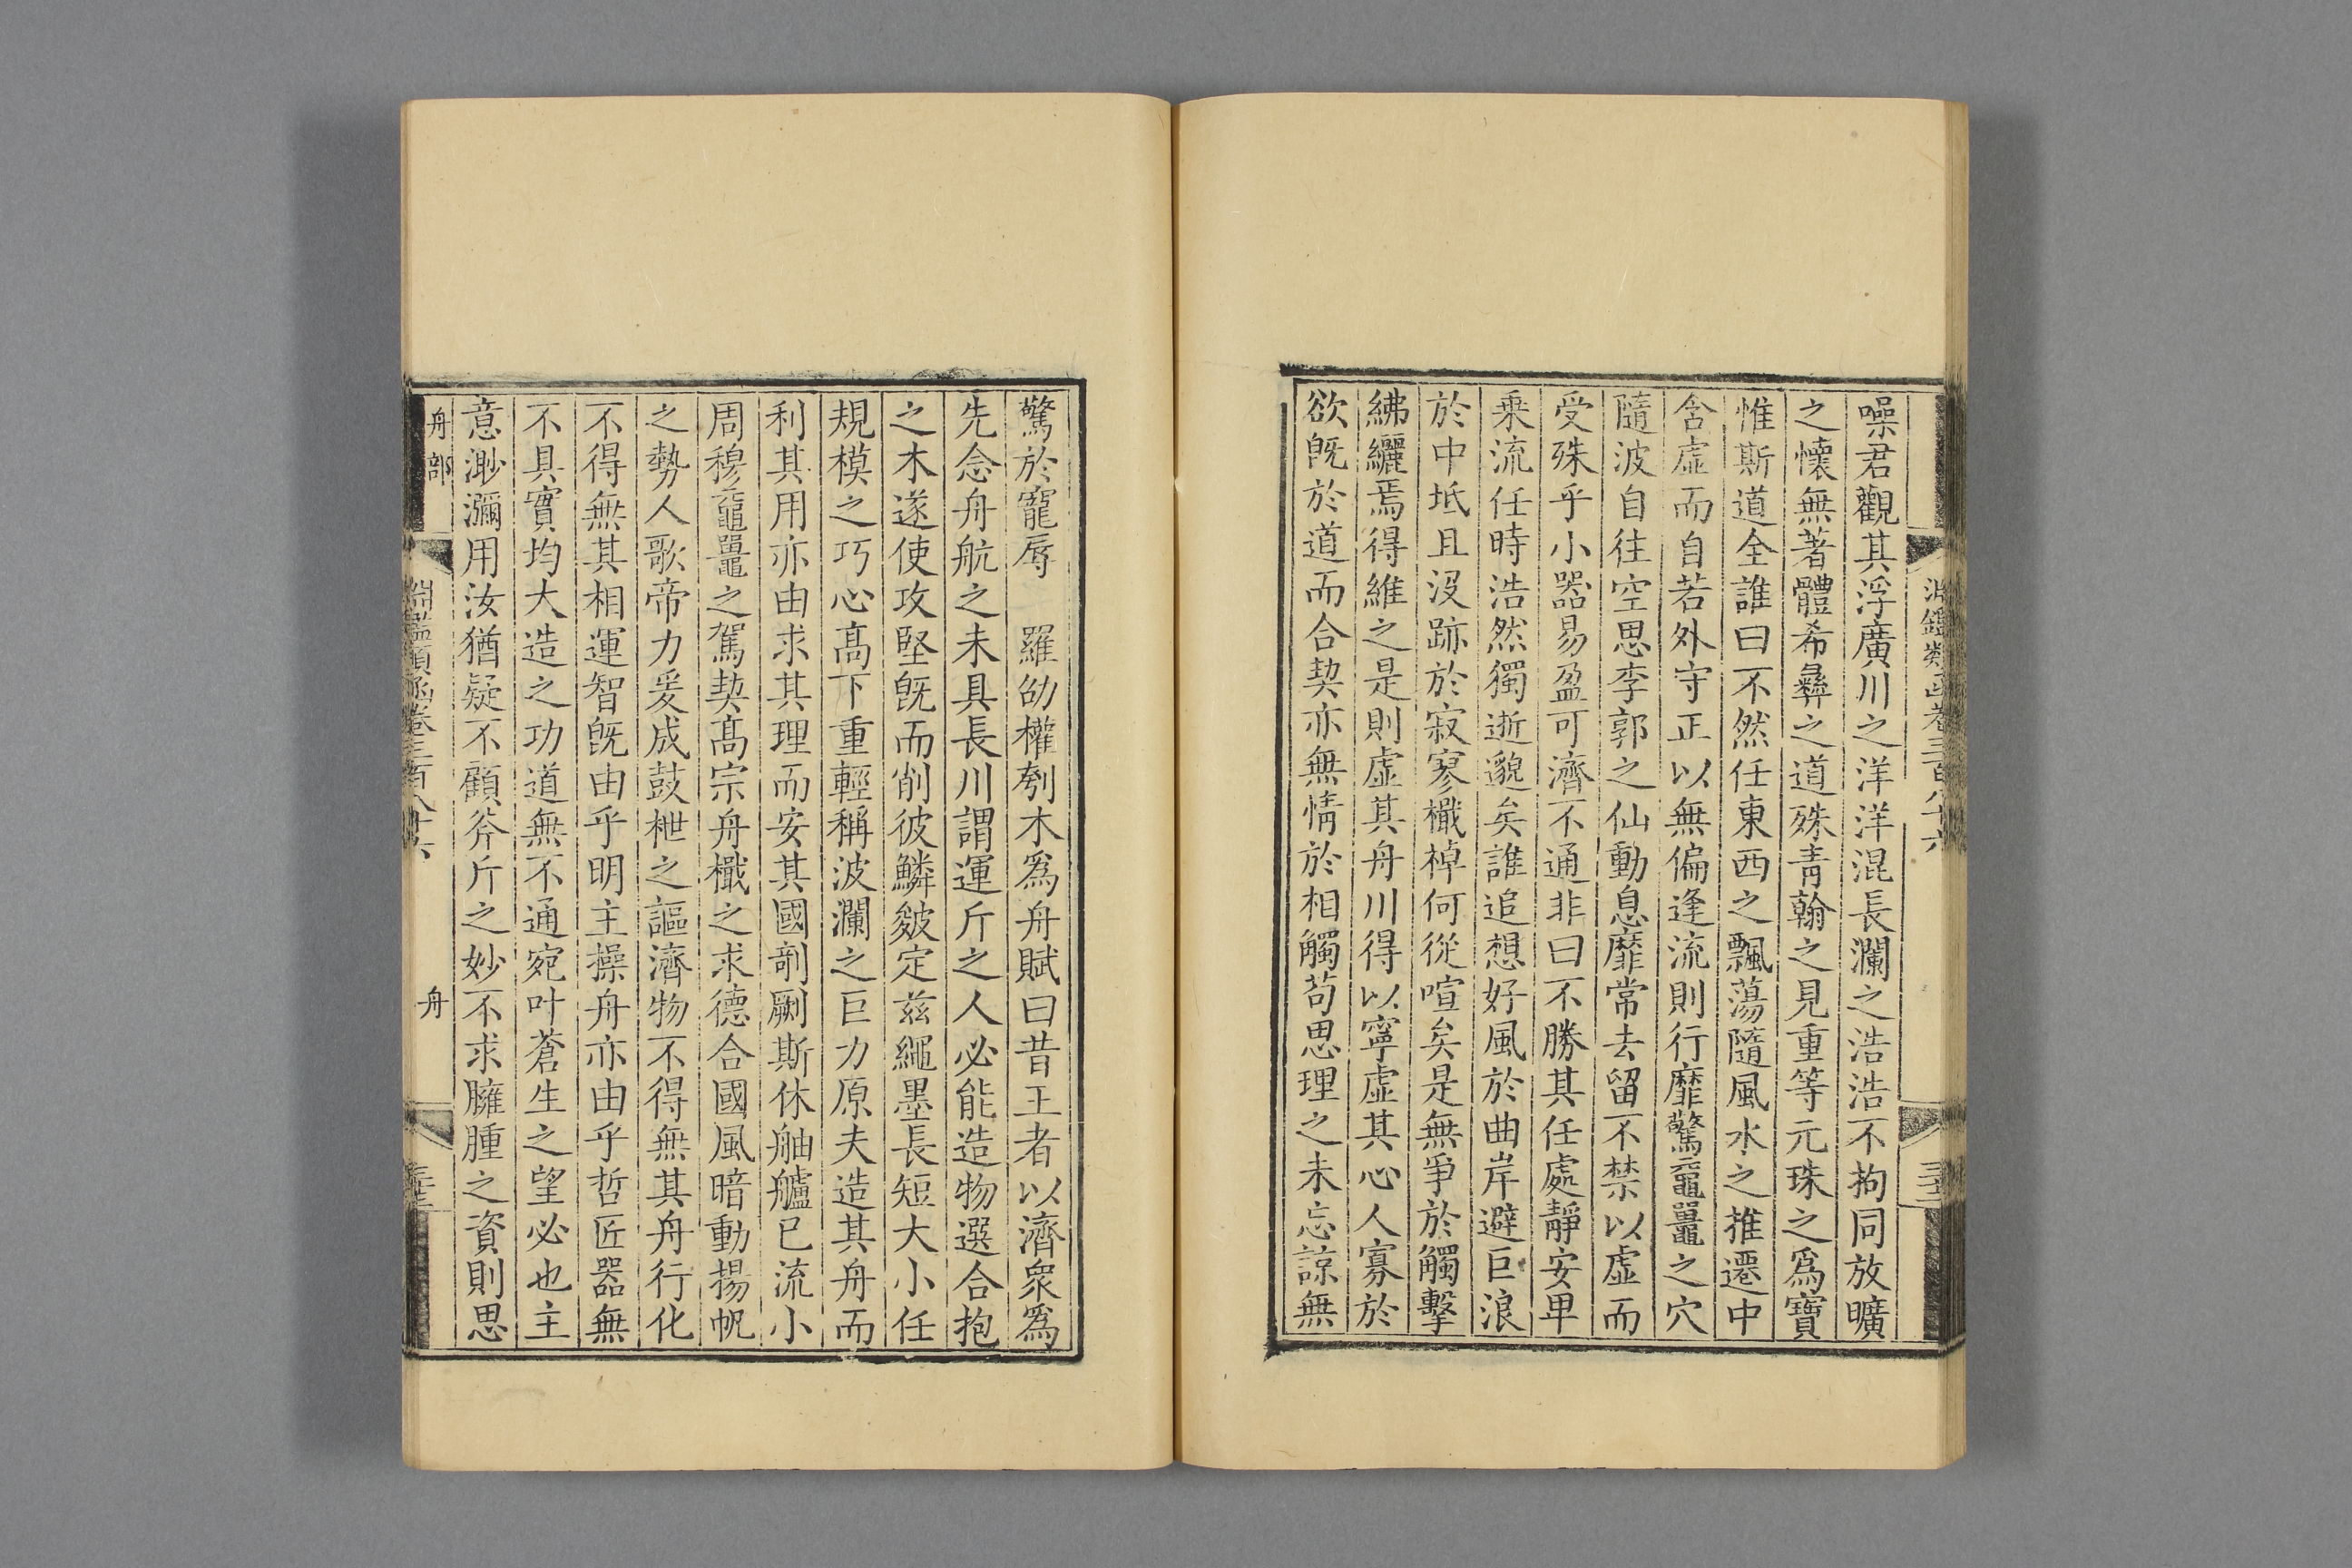 淵鑑類函卷三百八十六
噪君觀其浮廣川之洋洋混長瀾之浩浩不拘同放曠
之懷無著體希彝之道殊靑翰之見重等元珠之爲寶
惟斯道全誰曰不然任東西之飄蕩隨風水之推遷中
含虛而自若外守正以無偏逢流則行靡驚黿鼉之穴
隨波自往空思李郭之仙動息靡常去留不禁以虛而
受殊乎小器易盈可濟不通非曰不勝其任處靜安卑
乗流任時浩然獨逝邈矣誰追想好風於曲岸避巨浪
於中坻且沒跡於寂寥檝棹何從喧矣是無爭於觸擊
紼纚焉得維之是則虛其舟川得以寧虛其心人寡於
欲旣於道而合契亦無情於相觸苟思理之未忘諒無
驚於寵辱　羅劭權刳木爲舟賦曰昔王者以濟衆爲
先念舟航之未具長川謂運斤之人必能造物選合抱
之木遂使攻堅旣而削彼鱗皴定兹繩墨長短大小任
規模之巧心高下重輕稱波瀾之巨力原夫造其舟而
利其用亦由求其理而安其國剞劂斯休舳艫已流小
周穆黿鼉之駕契高宗舟檝之求德合國風暗動揚帆
之勢人歌帝力爰成鼓枻之謳濟物不得無其舟行化
不得無其相運智旣由乎明主操舟亦由乎哲匠器無
不具實均大造之功道無不通宛叶蒼生之望必也主
意渺瀰用汝猶疑不顧斧斤之妙不求臃腫之資則思
舟部
淵鑑類函卷三百八十六
舟